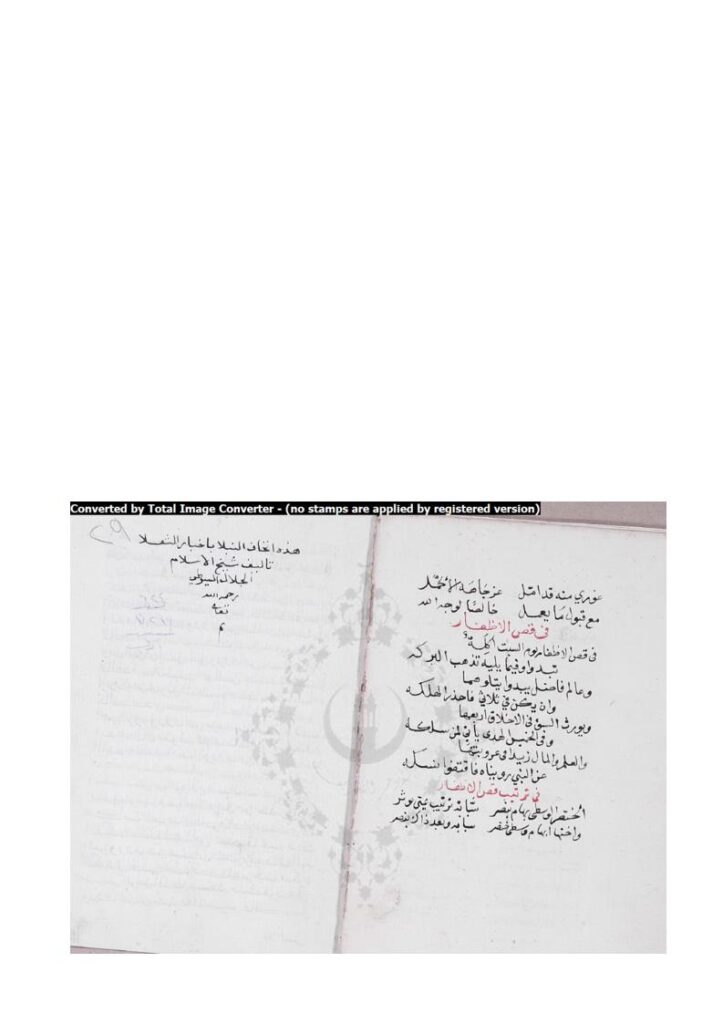 Converted by Total Image Converter - (no stamps are applied by registered version)
منه قد امل عز جاهه الاكمل
مع قبول ما يعمل خالصا لوجه الله
في قص الاظفار
في قص الاظفار يوم السبت اكلة
تبدوا وفيما يليه تذهب البركه
وعالم فاضل يبدوا بتلوهما
وان يكن في ثلاثي فاحذر الهلكه
ويورث السو في الاخلاق اربعها
وفي الخميس الهدى يأتي لمن سلكه
والعلم والمال زيدا في عروبتها
عن النبي رويناه فاقتفوا نسكه
في ترتيب قص الاظفار
الخنصر الوسطى بهام بنصر سبابة ترتيب يمنى
واختها ابهام وسطى خنصر سبابه وبعد ذاك بنصر
٢٩
هذه اتحاف النبلا باخبار الثقلا
تاليف شيخ الاسلام
الجلال السيوطي
رحمه الله
تعالى
م